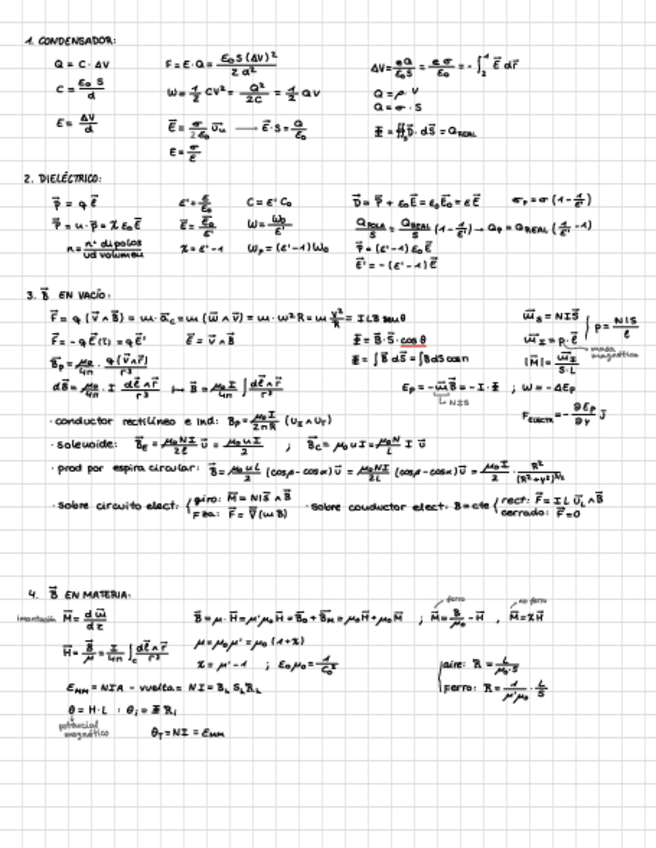 1. CONDENSADOR:
Q = C · ΔV
F = E·Q = ε₀S(ΔV)² / 2d²
ΔV = eQ/ε₀S = eσ/ε₀ = -∫₂¹ E⃗ dr⃗
C = ε₀ S / d
W = 1/2 CV² = Q²/2C = 1/2 QV
Q = ρ · V
Q = σ · S
E = ΔV/d
E⃗ = σ/2ε₀ u⃗ᵤ → E⃗·S = Q/ε₀
Φ = ∯ D⃗ · dS⃗ = Q REAL
E = σ/ε
2. DIELÉCTRICO:
p⃗ = q ℓ⃗
ε' = ε/ε₀
C = ε' C₀
D⃗ = P⃗ + ε₀E⃗ = ε₀E⃗₀ = εE⃗
σₚ = σ (1 - 1/ε')
P⃗ = n · p⃗ = χ ε₀E⃗
E⃗ = E⃗₀/ε'
W = W₀/ε'
Q POLA/S = Q REAL/S (1 - 1/ε') → Qₚ = Q REAL (1/ε' - 1)
n = nº dipolos / ud volumen
χ = ε' - 1
Wₚ = (ε' - 1) W₀
P⃗ = (ε' - 1) ε₀ E⃗
E⃗' = - (ε' - 1) E⃗
3. B⃗ EN VACÍO:
F⃗ = q (v⃗ ∧ B⃗) = m · a⃗c = m (ω⃗ ∧ v⃗) = m · ω²R = m v²/R = ILB senθ
m⃗s = NIS⃗
p = NIS/ℓ
F⃗ = -qE⃗(z) = qE⃗'
E⃗ = v⃗ ∧ B⃗
Φ = B⃗ · S⃗ · cos θ
m⃗I = p · ℓ⃗
masa magnética
B⃗p = μ₀/4π · q(v⃗∧r⃗)/r³
Φ = ∫ B⃗ dS⃗ = ∫BdS cosα
|M⃗| = m⃗I / S·L
dB⃗ = μ₀/4π · I dℓ⃗∧r⃗/r³ ↦ B⃗ = μ₀I/4π ∫ dℓ⃗∧r⃗/r³
Eₚ = -m⃗B⃗ = -I·Φ ; W = -ΔEₚ
NIS
F ELECTR = - ∂Eₚ/∂y j⃗
· conductor rectilíneo e ind: Bₚ = μ₀I/2πR (Uɪ∧Uᵣ)
· solenoide: B⃗E = μ₀NI/2ℓ u⃗ = μ₀nI/2 ; B⃗c = μ₀nI = μ₀N/L I u⃗
· prod por espira circular: B⃗ = μ₀nI/2 (cosβ - cosα) u⃗ = μ₀NI/2L (cosβ - cosα) u⃗ = μ₀I/2 · R²/(R²+y²)^3/2
· sobre circuito elect: { giro: M⃗ = NIS⃗ ∧ B⃗
Fza: F⃗ = ∇⃗(mB)
· sobre conductor elect. B=cte { rect: F⃗ = IL u⃗L∧B⃗
cerrado: F⃗ = 0
4. B⃗ EN MATERIA:
imantación M⃗ = dm⃗/dz
B⃗ = μ · H⃗ = μ'μ₀H⃗ = B⃗₀ + B⃗M = μ₀H⃗ + μ₀M⃗ ; M⃗ = B⃗/μ₀ - H⃗ , M⃗ = χH⃗
ferro
no ferro
H⃗ = B⃗/μ = I/4π ∫c dℓ⃗∧r⃗/r³
μ = μ₀μ' = μ₀ (1+χ)
χ = μ' - 1 ; ε₀μ₀ = 1/C₀²
{ aire: R = L/μ₀·S
Ferro: R = 1/μ'μ₀ · L/S
EMM = NIA - vuelta = NI = BᵢSᵢRᵢ
θ = H·L ; θᵢ = Φ Rᵢ
potencial magnético
θT = NI = EMM